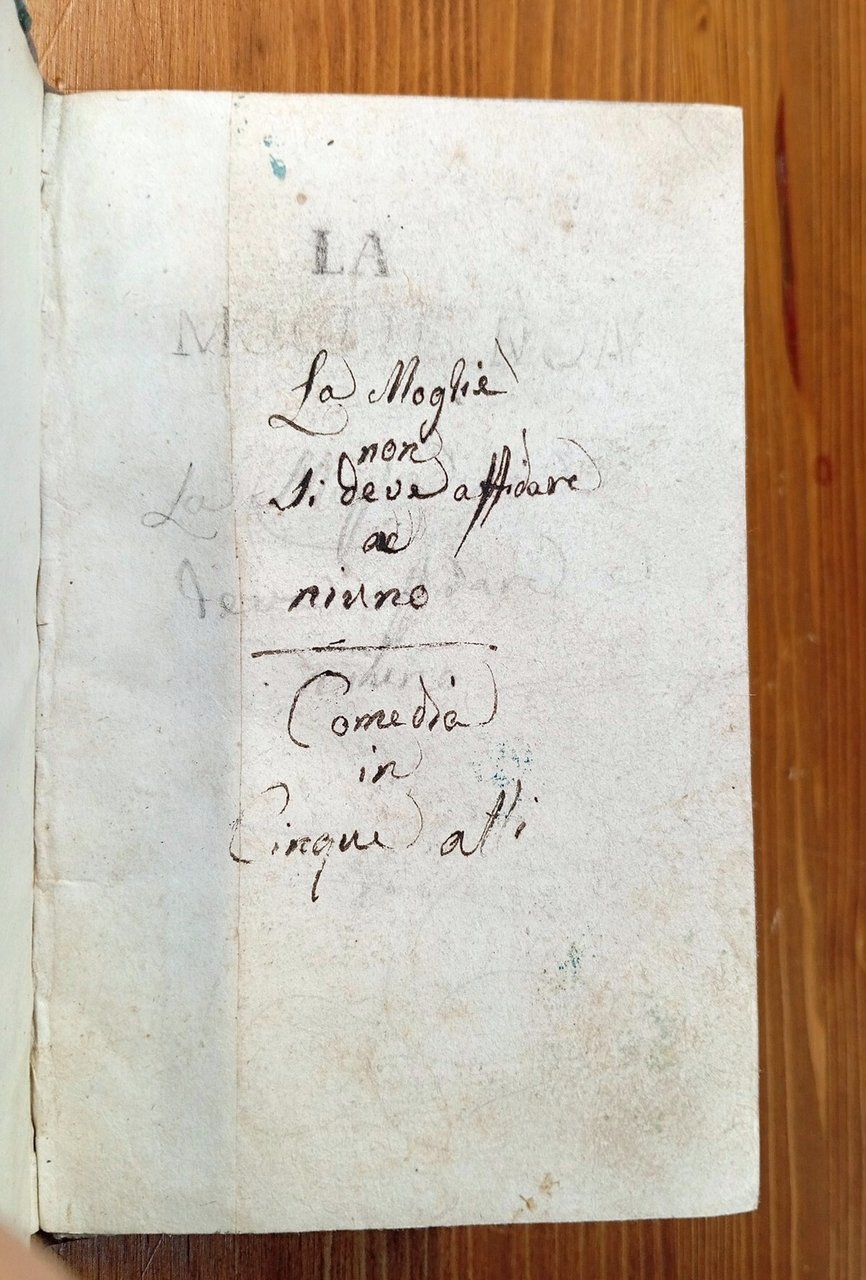 LA
MOGLIE NON
La Moglie
non
si deve affidare
ad
niuno
Comedia
in
Cinque atti